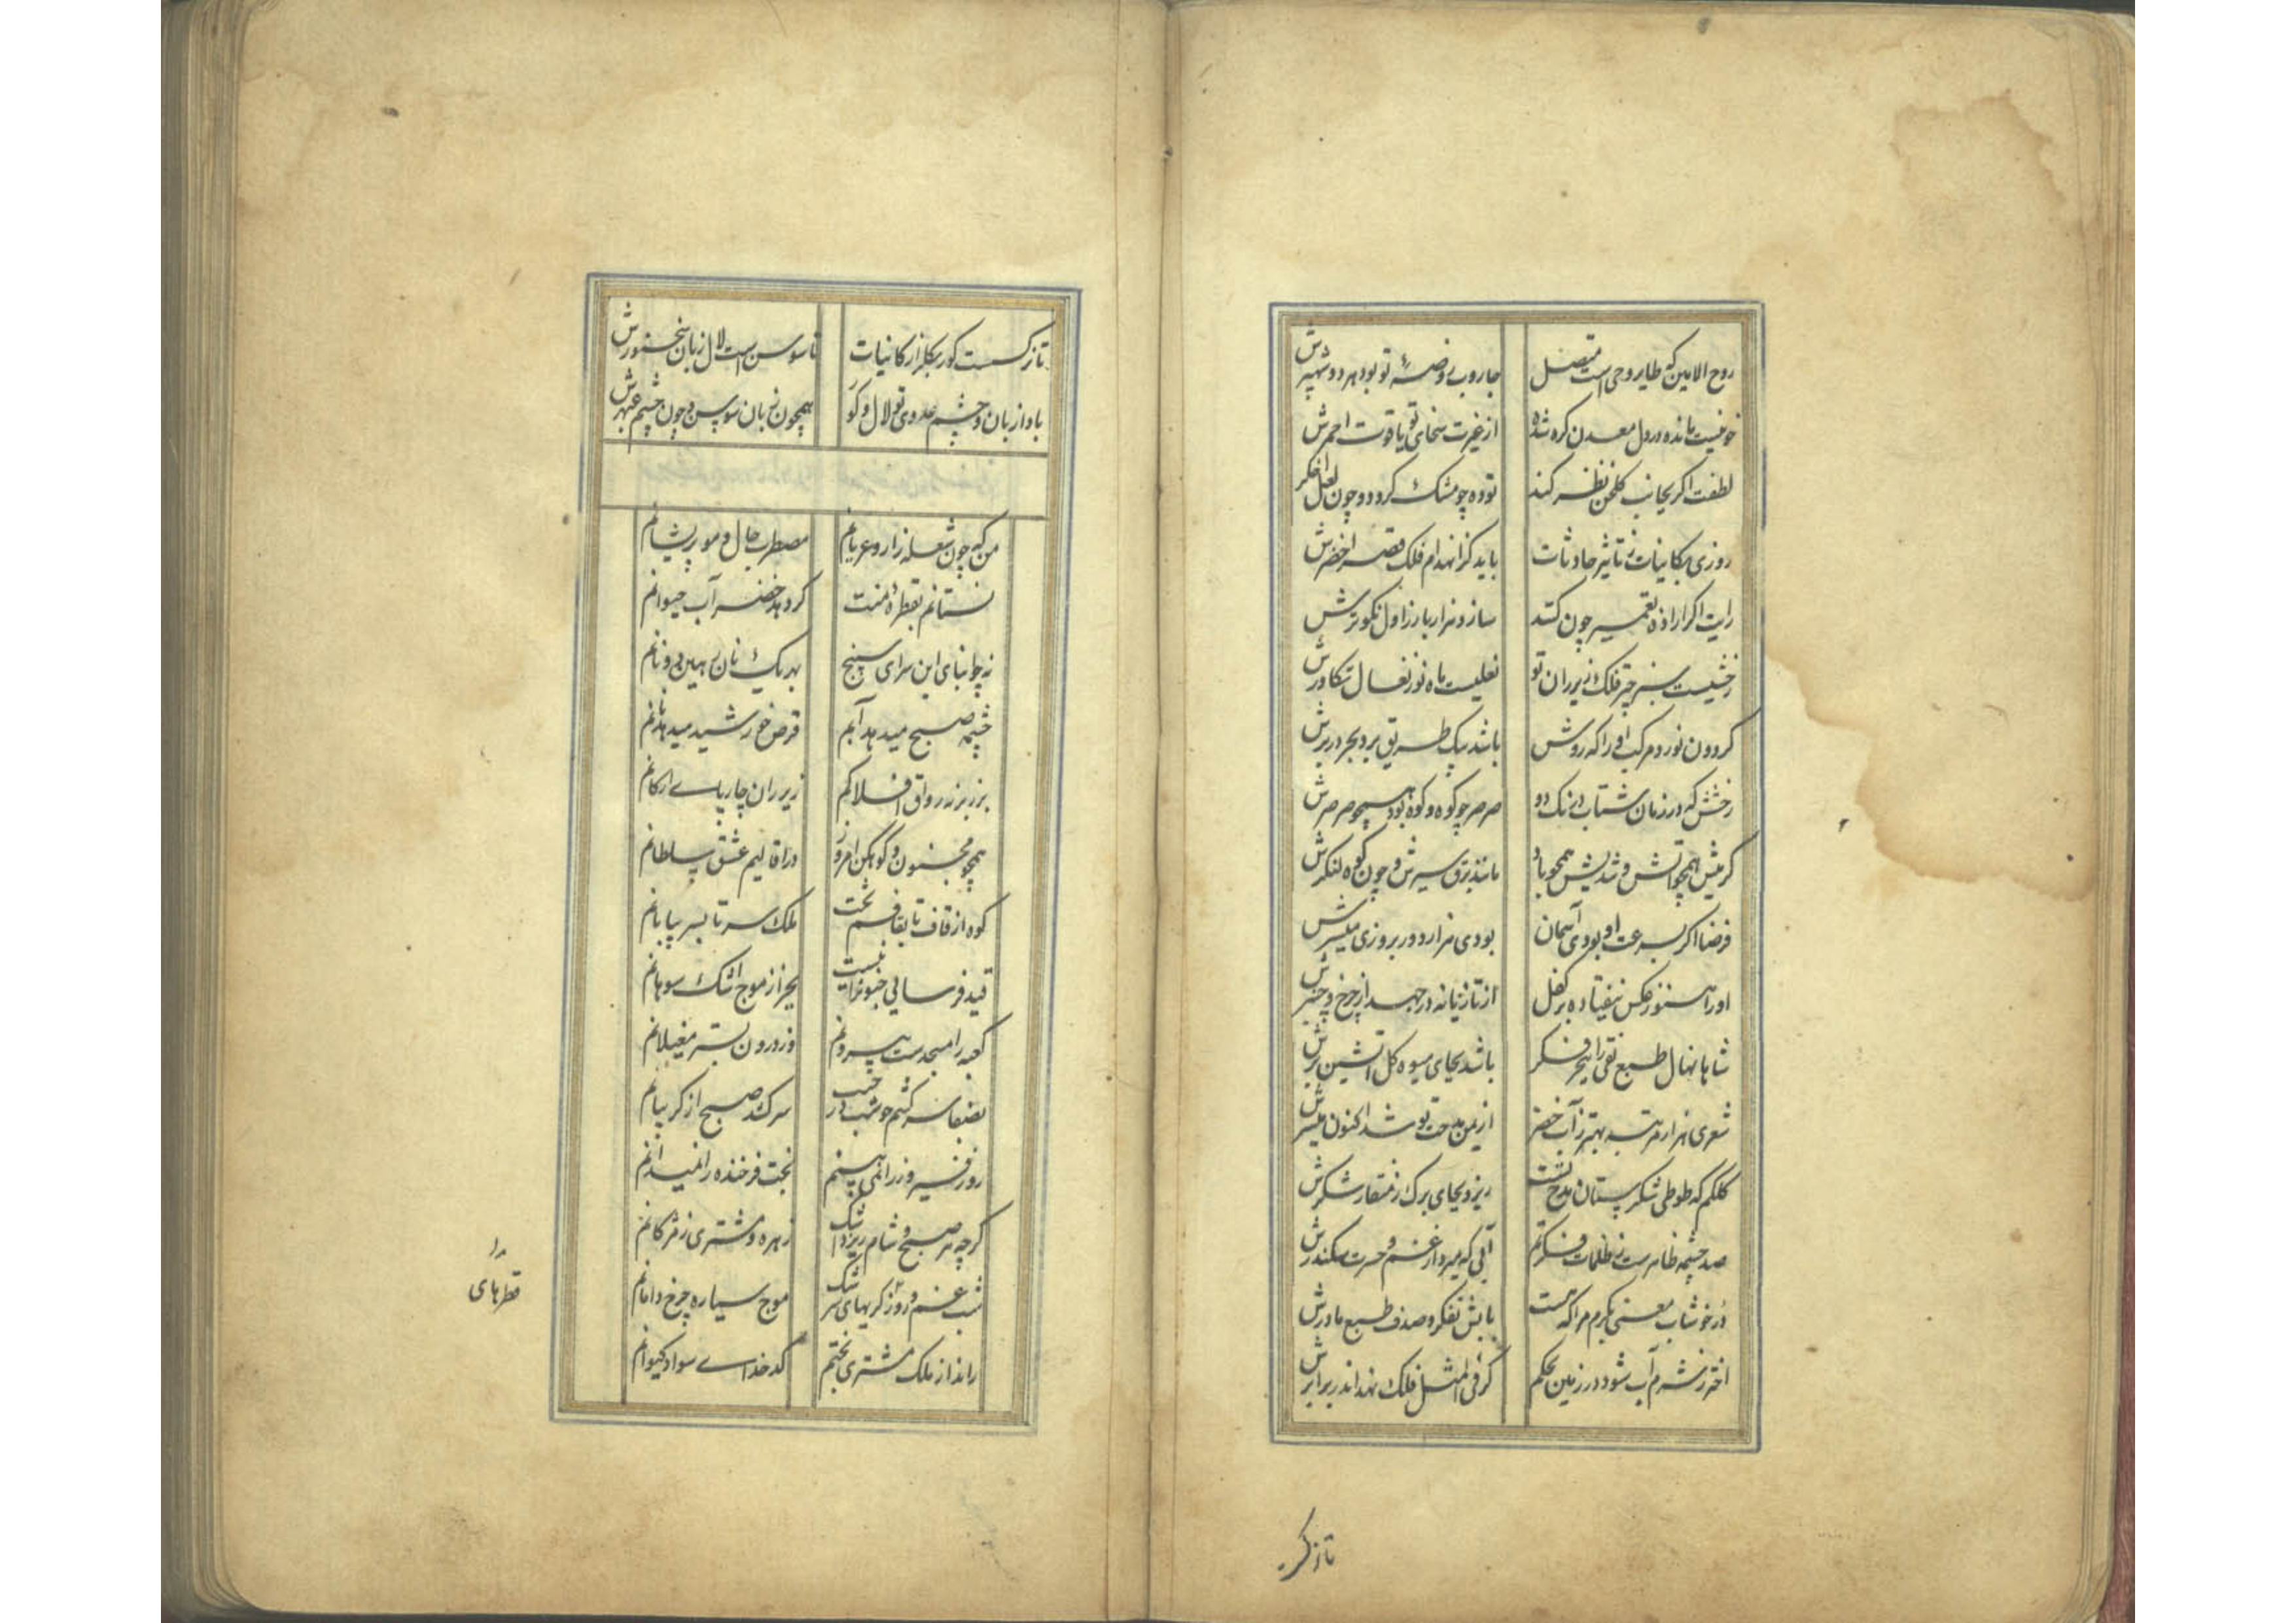 روح الامین که طایر وحی است متصل جاروب روضهٔ تو بود هر دو شهپرش
خونیست مانده در دل معدن کره شده از غیرت سخای تو یاقوت احمرش
لطفت اکر بجانب کلخن نظر کند توده چو مشک کردد و چون لعل اخکرش
روزی بکاینات ز تاثیر حادثات باید کز انهدام فلک قصر اخضرش
رایت اکر اراده تعمیر چون کند سازد هزار بار ز اول نکوترش
رخشیست سبز چتر فلک زیر ران تو نعلیست ماه نو ز نعال تکاورش
کردون نورد مرکب او را که روش باشد بیک طریق بر و بحر در برش
رخشش که در زمان شتاب درنک دو صرصر چو کوه و کوه بود همچو صرصرش
کرمیش همچو آتش و تندیش همچو باد مانند برق سیرش و چون کوه لنکرش
فرضا اکر بسرعت او بودی آسمان بودی هزار دور بروزی میسرش
او را هنوز عکس نیفتاده بر کفل از تازیانه در جهد از چرخ و چنبرش
شاها نهال طبع نقی را ببحر فکر باشد بجای میوه کل آتشین برش
شعری هزار مرتبه بهتر ز آب خضر از یمن مدحت تو شد اکنون میسرش
کلکم که طوطی شکرستان مدح تست ریزد بجای برک ز منقار شکرش
صد چشمه ظاهرست ز ظلمات فکرتم آبی که میرد از غم و حسرت سکندرش
در خوشاب معنی بکرم مراکه هست بابش تفکر و صدف طبع مادرش
اختر ز شرم آب شود در زمین بحکم کر فی المثل فلک نهد اندر برابرش
تا نرکس
تا نرکست کور بکلزار کاینات تا سوسن است لال زبان سخنورش
بادا زبان و چشم عدوی تو لال و کور همچون زبان سوسن و چون چشم عبهرش
من که چون شعله زار و عریانم مضطرب حال و مو پریشانم
نستانم بقطرهٔ منت کر دهد خضر آب حیوانم
نه چو ابنای این سرای سپنج بهر یک نان رهین دونانم
چشمه صبح میدهد آبم قرص خورشید میدهد نانم
بر زبر نه رواق افلاکم زیر ران چارپای ارکانم
همچو مجنون و کوهکن امروز در اقالیم عشق سلطانم
کوه از قاف تا بقافم تخت ملک سر تا بسر بیابانم
قید فرسایی جنونرا نیست بجز از موج اشک سوهانم
کعبه را مسجدست بیرونم وز درون بستر مغیلانم
سر کشم چو شب در جیب سر کند صبح از کریبانم
روز فیروز را نمی بینم بخت فرخنده را نمیدانم
کرچه هر صبح و شام ریزد اشک زهره و مشتری ز مژکانم
شب غم و روز کریهای سرشک موج سیاره چرخ دامانم
قطرهای
راند از ملک مشتری بختم کدخدای سواد کیوانم